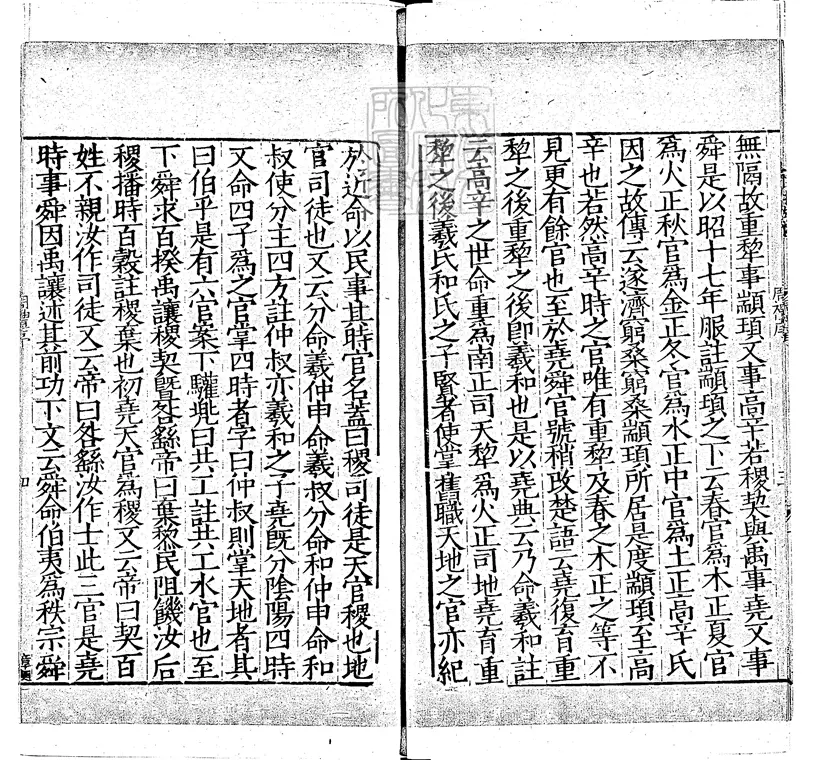 無隔故重犂事顓頊又事高辛若稷契與禹事堯又事
舜是以昭十七年服註顓頊之下云春官爲木正夏官
爲火正秋官爲金正冬官爲水正中官爲土正高辛氏
因之故傳云遂濟窮桑窮桑顓頊所居是度顓頊至高
辛也若然高辛時之官唯有重犂及春之木正之等不
見更有餘官也至於堯舜官號稍改楚語云堯復育重
犂之後重犂之後即羲和也是以堯典云乃命羲和註
云高辛之世命重爲南正司天犂爲火正司地堯育重
犂之後羲氏和氏之子賢者使掌舊職天地之官亦紀
於近命以民事其時官名蓋曰稷司徒是天官稷也地
官司徒也又云分命羲仲申命羲叔分命和仲申命和
叔使分主四方註仲叔亦羲和之子堯既分陰陽四時
又命四子爲之官掌四時者字曰仲叔則掌天地者其
曰伯乎是有六官案下驩兠曰共工註共工水官也至
下舜求百揆禹讓稷契暨咎繇帝曰棄黎民阻饑汝后
稷播時百穀註稷棄也初堯天官爲稷又云帝曰契百
姓不親汝作司徒又云帝曰咎繇汝作士此三官是堯
時事舜因禹讓述其前功下文云舜命伯夷爲秩宗舜